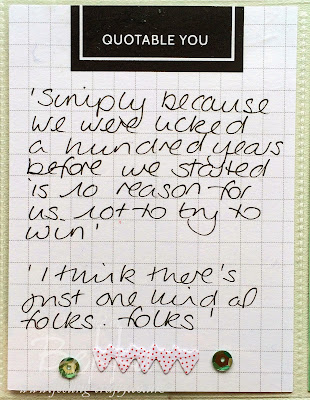 QUOTABLE YOU
'Simply because
we were licked
a hundred years
before we started
is no reason for
us not to try to
win'
'I think there's
just one kind of
folks. folks'